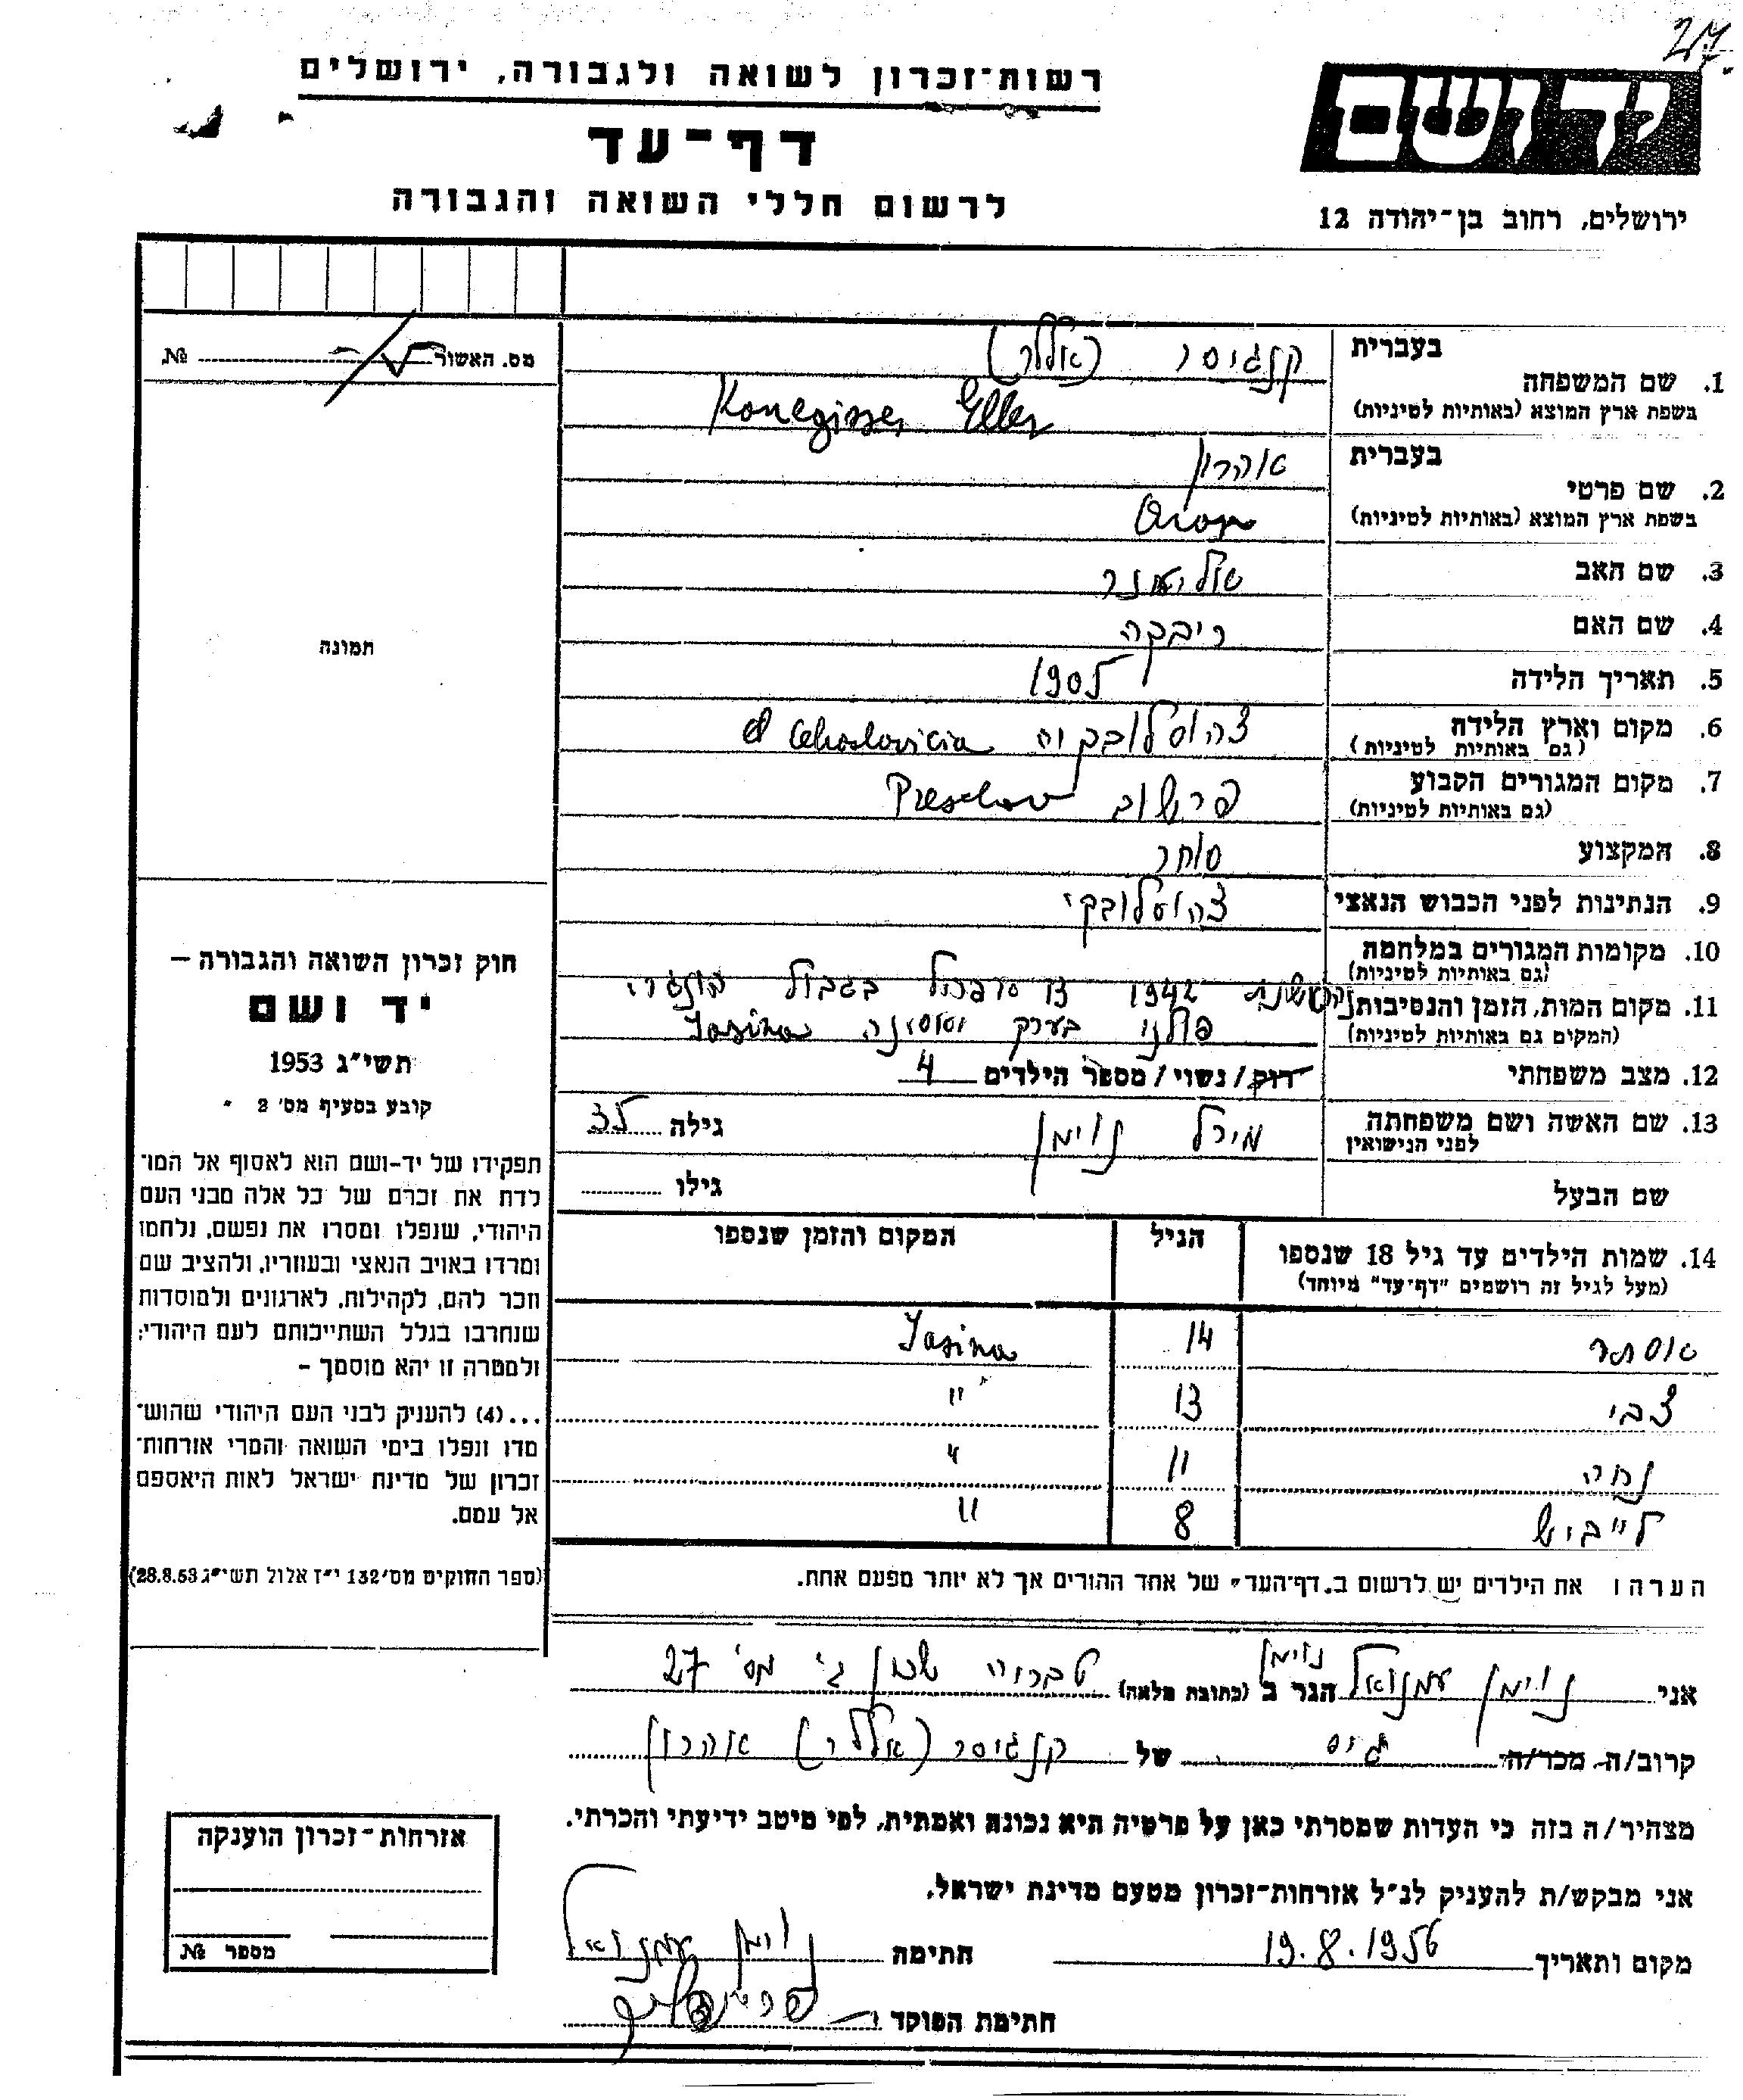 27.
יד ושם
ירושלים, רחוב בן-יהודה 12
רשות-זכרון לשואה ולגבורה, ירושלים
דף-עד
לרשום חללי השואה והגבורה
מס. האשור № 
1. שם המשפחה בעברית קנגיסר (אללר)
בשפת ארץ המוצא (באותיות לטיניות) Konegisser Eller
2. שם פרטי בעברית אהרון
בשפת ארץ המוצא (באותיות לטיניות) Aron
3. שם האב אליעזר
4. שם האם ריבקה
5. תאריך הלידה 1905
6. מקום וארץ הלידה צהוסלובקיה
(גם באותיות לטיניות)
7. מקום המגורים הקבוע פרשוב Preschov
(גם באותיות לטיניות)
8. המקצוע סוחר
9. הנתינות לפני הכבוש הנאצי צהוסלובקי
10. מקומות המגורים במלחמה
(גם באותיות לטיניות)
11. מקום המות, הזמן והנסיבות 1942 בגבול
(המקום גם באותיות לטיניות) פולני בערק יאסינה Jasina
12. מצב משפחתי רוק/נשוי/מספר הילדים 4
13. שם האשה ושם משפחתה לפני הנישואין מירל נוימן גילה 35
שם הבעל גילו
14. שמות הילדים עד גיל 18 שנספו הגיל המקום והזמן שנספו
(מעל לגיל זה רושמים "דף-עד" מיוחד)
אסתר 14 Jasina
צבי 13 "
נחה 11 "
לייביש 8 "
הערה ו את הילדים יש לרשום ב„דף-העד" של אחד ההורים אך לא יותר מפעם אחת.
נוימן
אני נוימן עמנואל הגר ב (כתובת מלאה) טבריה שכון ג' מס' 27
קרוב/ה מכר/ה גיס של קנגיסר (אללר) אהרון
מצהיר/ה בזה כי העדות שמסרתי כאן על פרטיה היא נכונה ואמתית, לפי מיטב ידיעתי והכרתי.
אני מבקש/ת להעניק לנ"ל אזרחות-זכרון מטעם מדינת ישראל.
מקום ותאריך 19.8.1956 חתימה נוימן עמנואל
חתימת הפוקד
תמונה
חוק זכרון השואה והגבורה –
יד ושם
תשי"ג 1953
קובע בסעיף מס' 2
תפקידו של יד-ושם הוא לאסוף אל המו-
לדת את זכרם של כל אלה מבני העם
היהודי, שנפלו ומסרו את נפשם, נלחמו
ומרדו באויב הנאצי ובעוזריו, ולהציב שם
וזכר להם, לקהילות, לארגונים ולמוסדות
שנחרבו בגלל השתייכותם לעם היהודי;
ולמטרה זו יהא מוסמך –
...(4) להעניק לבני העם היהודי שהוש-
מדו ונפלו בימי השואה והמרי אזרחות-
זכרון של מדינת ישראל לאות היאספם
אל עמם.
(ספר החוקים מס' 132 י"ז אלול תשי"ג 28.8.53)
אזרחות-זכרון הוענקה
מספר №